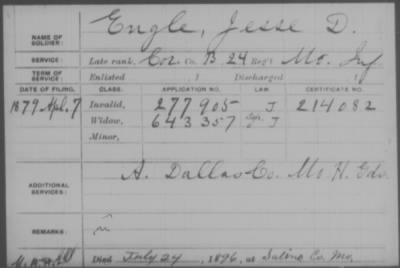 NAME OF SOLDIER: Engle, Jesse D.
SERVICE: Late rank, Cor. Co. B 24 Reg't Mo. Inf
TERM OF SERVICE: Enlisted , 1 Discharged , 1
DATE OF FILING. CLASS. APPLICATION NO. LAW. CERTIFICATE NO.
1879 Apl. 7 Invalid, 277905 J 214082
Widow, 643357 J
Minor,
ADDITIONAL SERVICES: A. Dallas Co. Mo. H. Gds.
REMARKS:
Died July 24, 1896, at Saline Co. Mo.